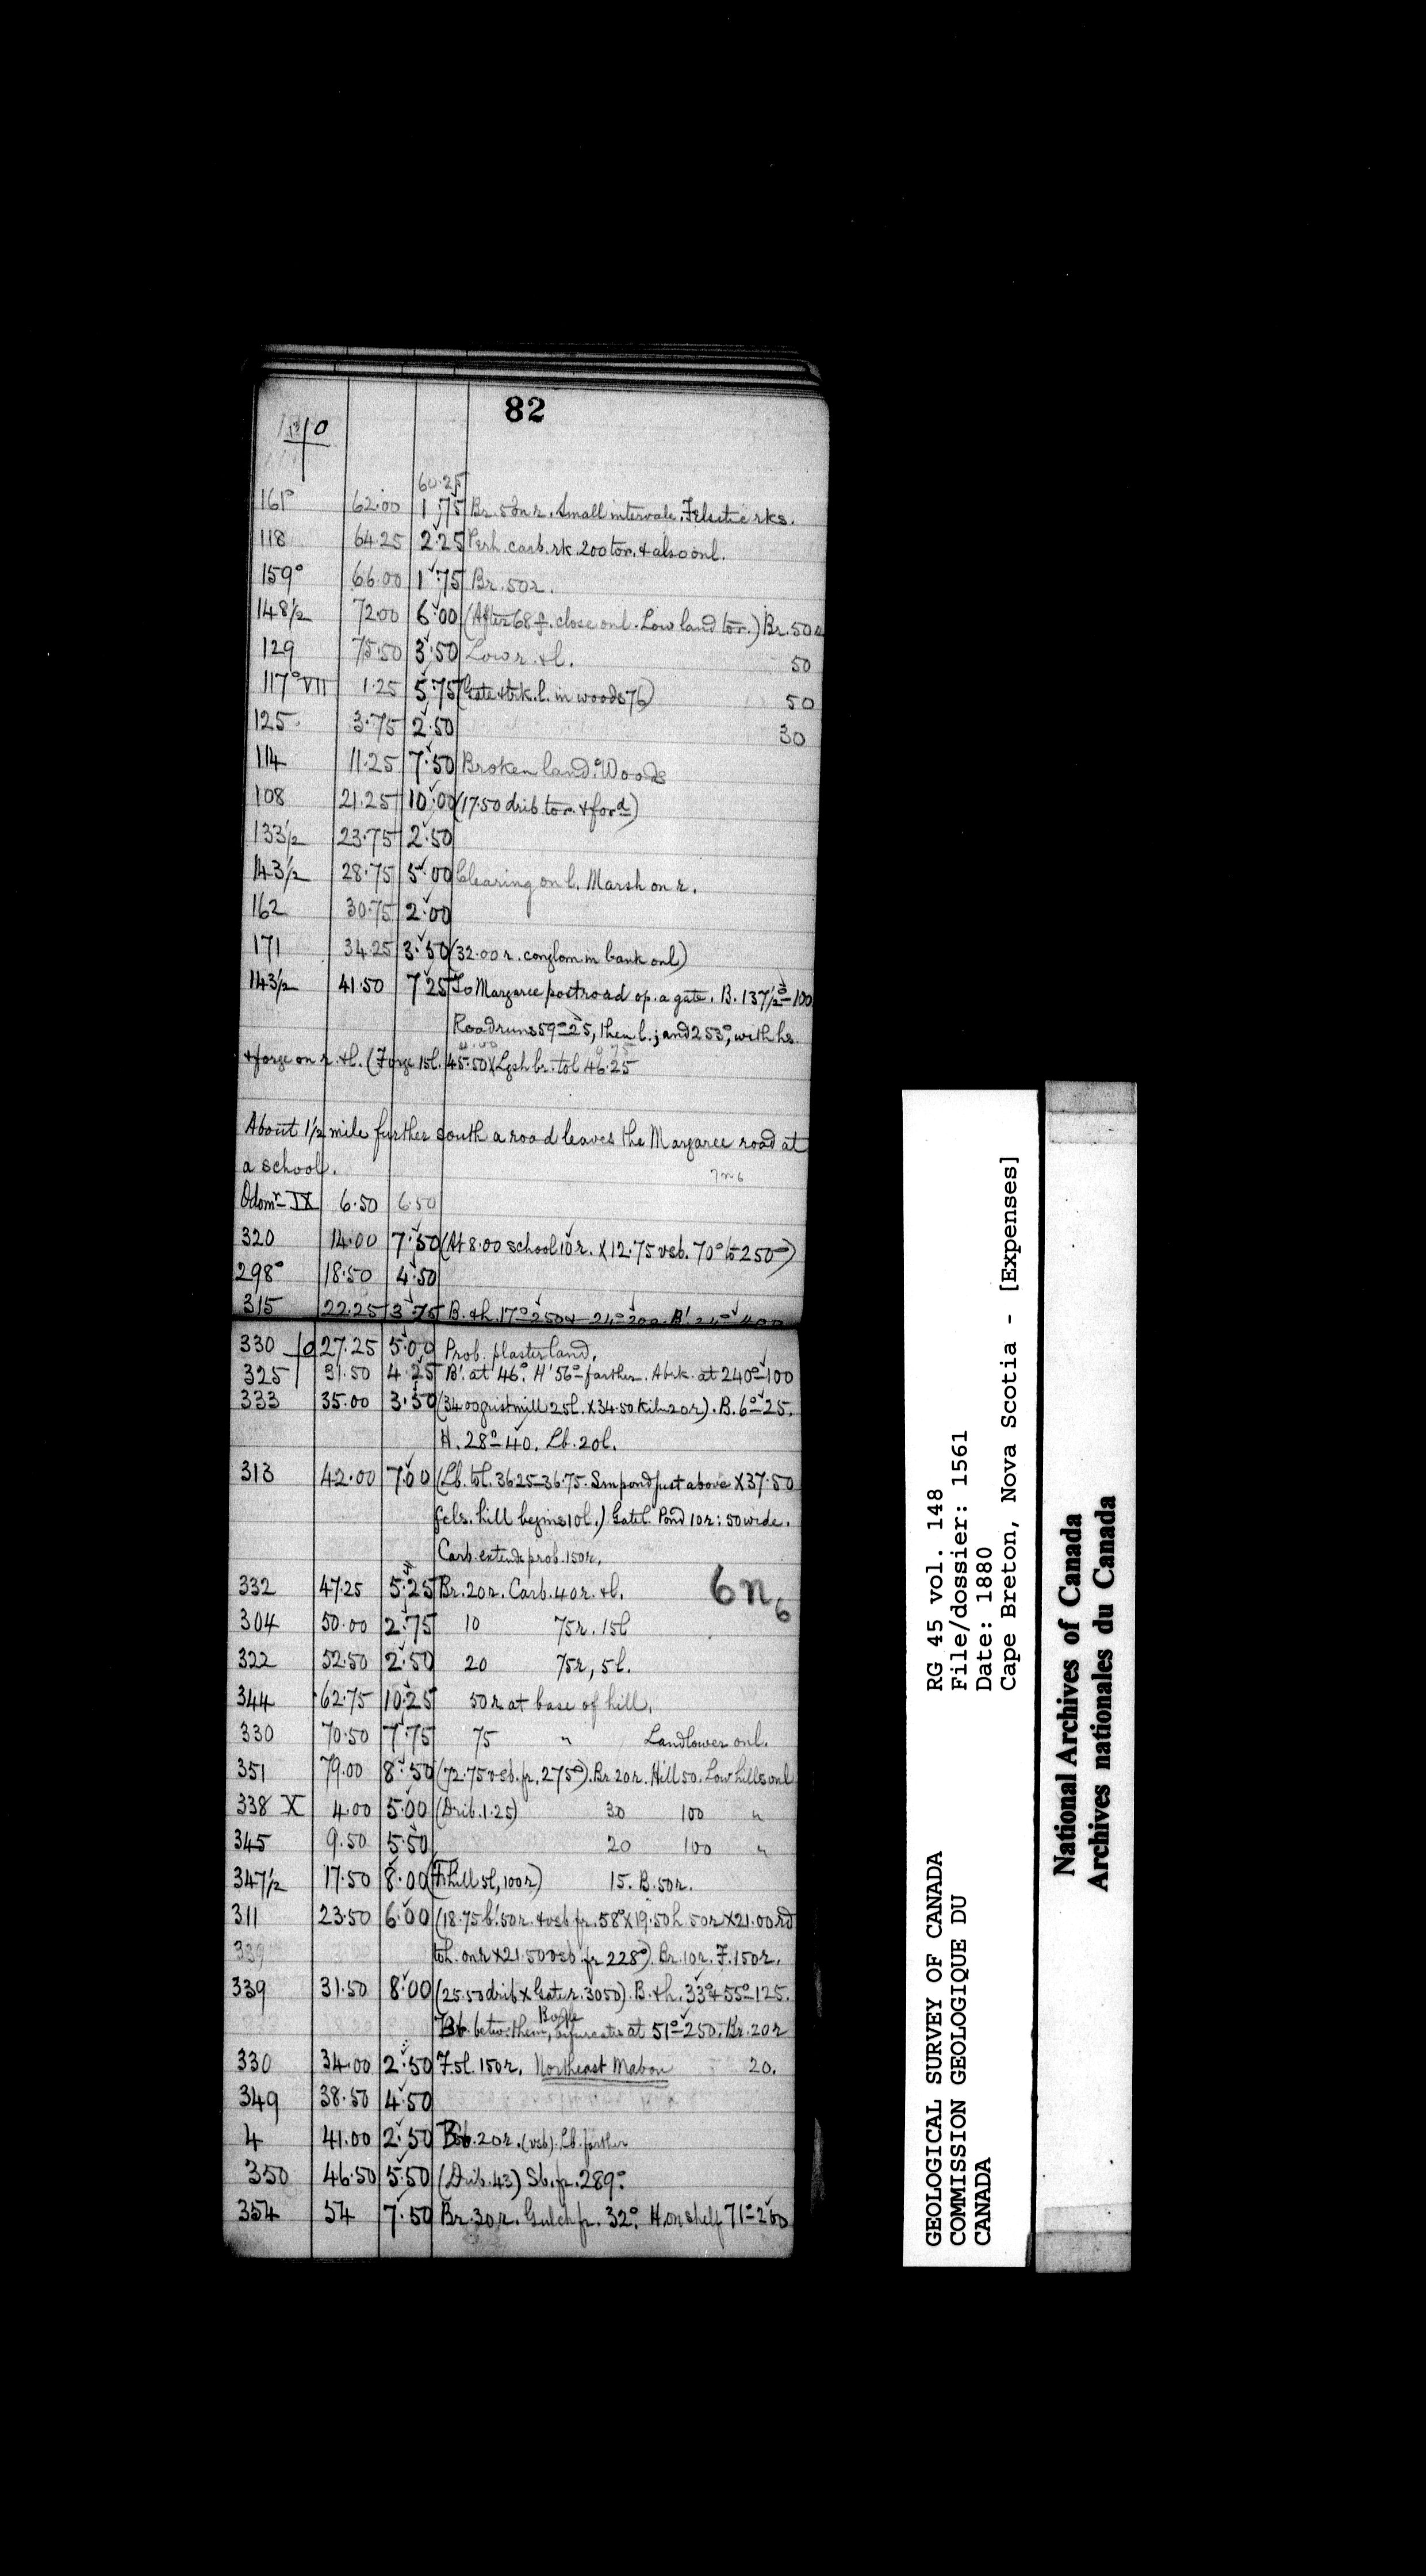 82
10
60.25
161° 62.00 1.75 Br. 50 n r. Small intervale. Felsitic rks.
118 64.25 2.25 Perh. carb. rk. 200 to r. & also on l.
159° 66.00 1.75 Br. 50 r.
148 1/2 72.00 6.00 (After 68 f. close on l. Low land to r.) Br. 50 r
129 75.50 3.50 Low r. & l. 50
117° VII 1.25 5.75 (Gate & brk. l. in woods 76) 50
125 3.75 2.50 30
114 11.25 7.50 Broken land. Woods
108 21.25 10.00 (17.50 drib. to r. & for d)
133 1/2 23.75 2.50
143 1/2 28.75 5.00 Clearing on l. Marsh on r.
162 30.75 2.00
171 34.25 3.50 (32.00 r. conglom in bank on l)
143 1/2 41.50 7.25 To Margaree post road op. a gate. B. 137 1/2° – 100
Road runs 59° – 25, then l.; and 253°, with hs.
& forge on r. & l. (Forge 15 l. 45.50 X Lgsh br. to l 46.25
About 1 1/2 mile further south a road leaves the Margaree road at
a school.
7 n 6
Odomr IX 6.50 6.50
320 14.00 7.50 (At 8.00 school 10 r. X 12.75 vsb. 70° to 250°)
298° 18.50 4.50
315 22.25 3.75 B. & h. 17° – 250 & 24° – 200. B' 24° – 400
330 10 27.25 5.00 Prob. plaster land.
325 31.50 4.25 B' at 46°. H' 56° farther. A brk. at 240° – 100
333 35.00 3.50 (34.00 gristmill 25 l. X 34.50 Kiln 20 r). B. 6° – 25.
H. 28° – 40. Lb. 20 l.
313 42.00 7.00 (Lb. to l. 36.25 – 36.75. Sm pond just above X 37.50
fels. hill begins 10 l.) Gate l. Pond 10 r: 50 wide.
Carb. extends prob. 150 r.
332 47.25 5.25 Br. 20 r. Carb. 40 r. & l. 6 n 6
304 50.00 2.75 10 75 r. 15 l
322 52.50 2.50 20 75 r, 5 l.
344 62.75 10.25 50 r at base of hill.
330 70.50 7.75 75 " Land lower on l.
351 79.00 8.50 (72.75 vsb. fr. 275°). Br 20 r. Hill 50. Low hills on l
338 X 4.00 5.00 (Drib. 1.25) 30 100 "
345 9.50 5.50 20 100 "
347 1/2 17.50 8.00 (hill 5 l, 100 r) 15. B. 50 r.
311 23.50 6.00 (18.75 b'. 50 r. & vsb fr. 58° X 19.50 h 50 r X 21.00 rd
339 to h. on r X 21.50 vsb fr 228°). Br. 10 r. F. 150 r.
339 31.50 8.00 (25.50 drib X Gate r. 30.50). B. & h. 33° & 55° – 125.
betw. them, bifurcates at 51° – 250. Br. 20 r
330 34.00 2.50 F. 5 l. 150 r. Northeast Mabou 20.
349 38.50 4.50
4 41.00 2.50 20 r. (vsb). Lb. farther
350 46.50 5.50 (Drib. 43) Sb. fr. 289°.
354 54 7.50 Br. 30 r. Gulch fr. 32°. H. on shelf 71° – 200
GEOLOGICAL SURVEY OF CANADA
COMMISSION GEOLOGIQUE DU
CANADA
RG 45 vol. 148
File/dossier: 1561
Date: 1880
Cape Breton, Nova Scotia - [Expenses]
National Archives of Canada
Archives nationales du Canada